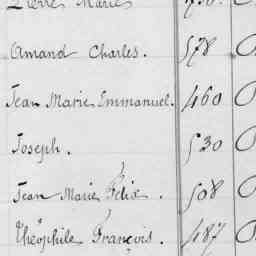 Pierre Marie
Amand Charles. 578
Jean Marie Emmanuel. 460
Joseph. 530
Jean Marie Félix. 508
Théophile François. 487